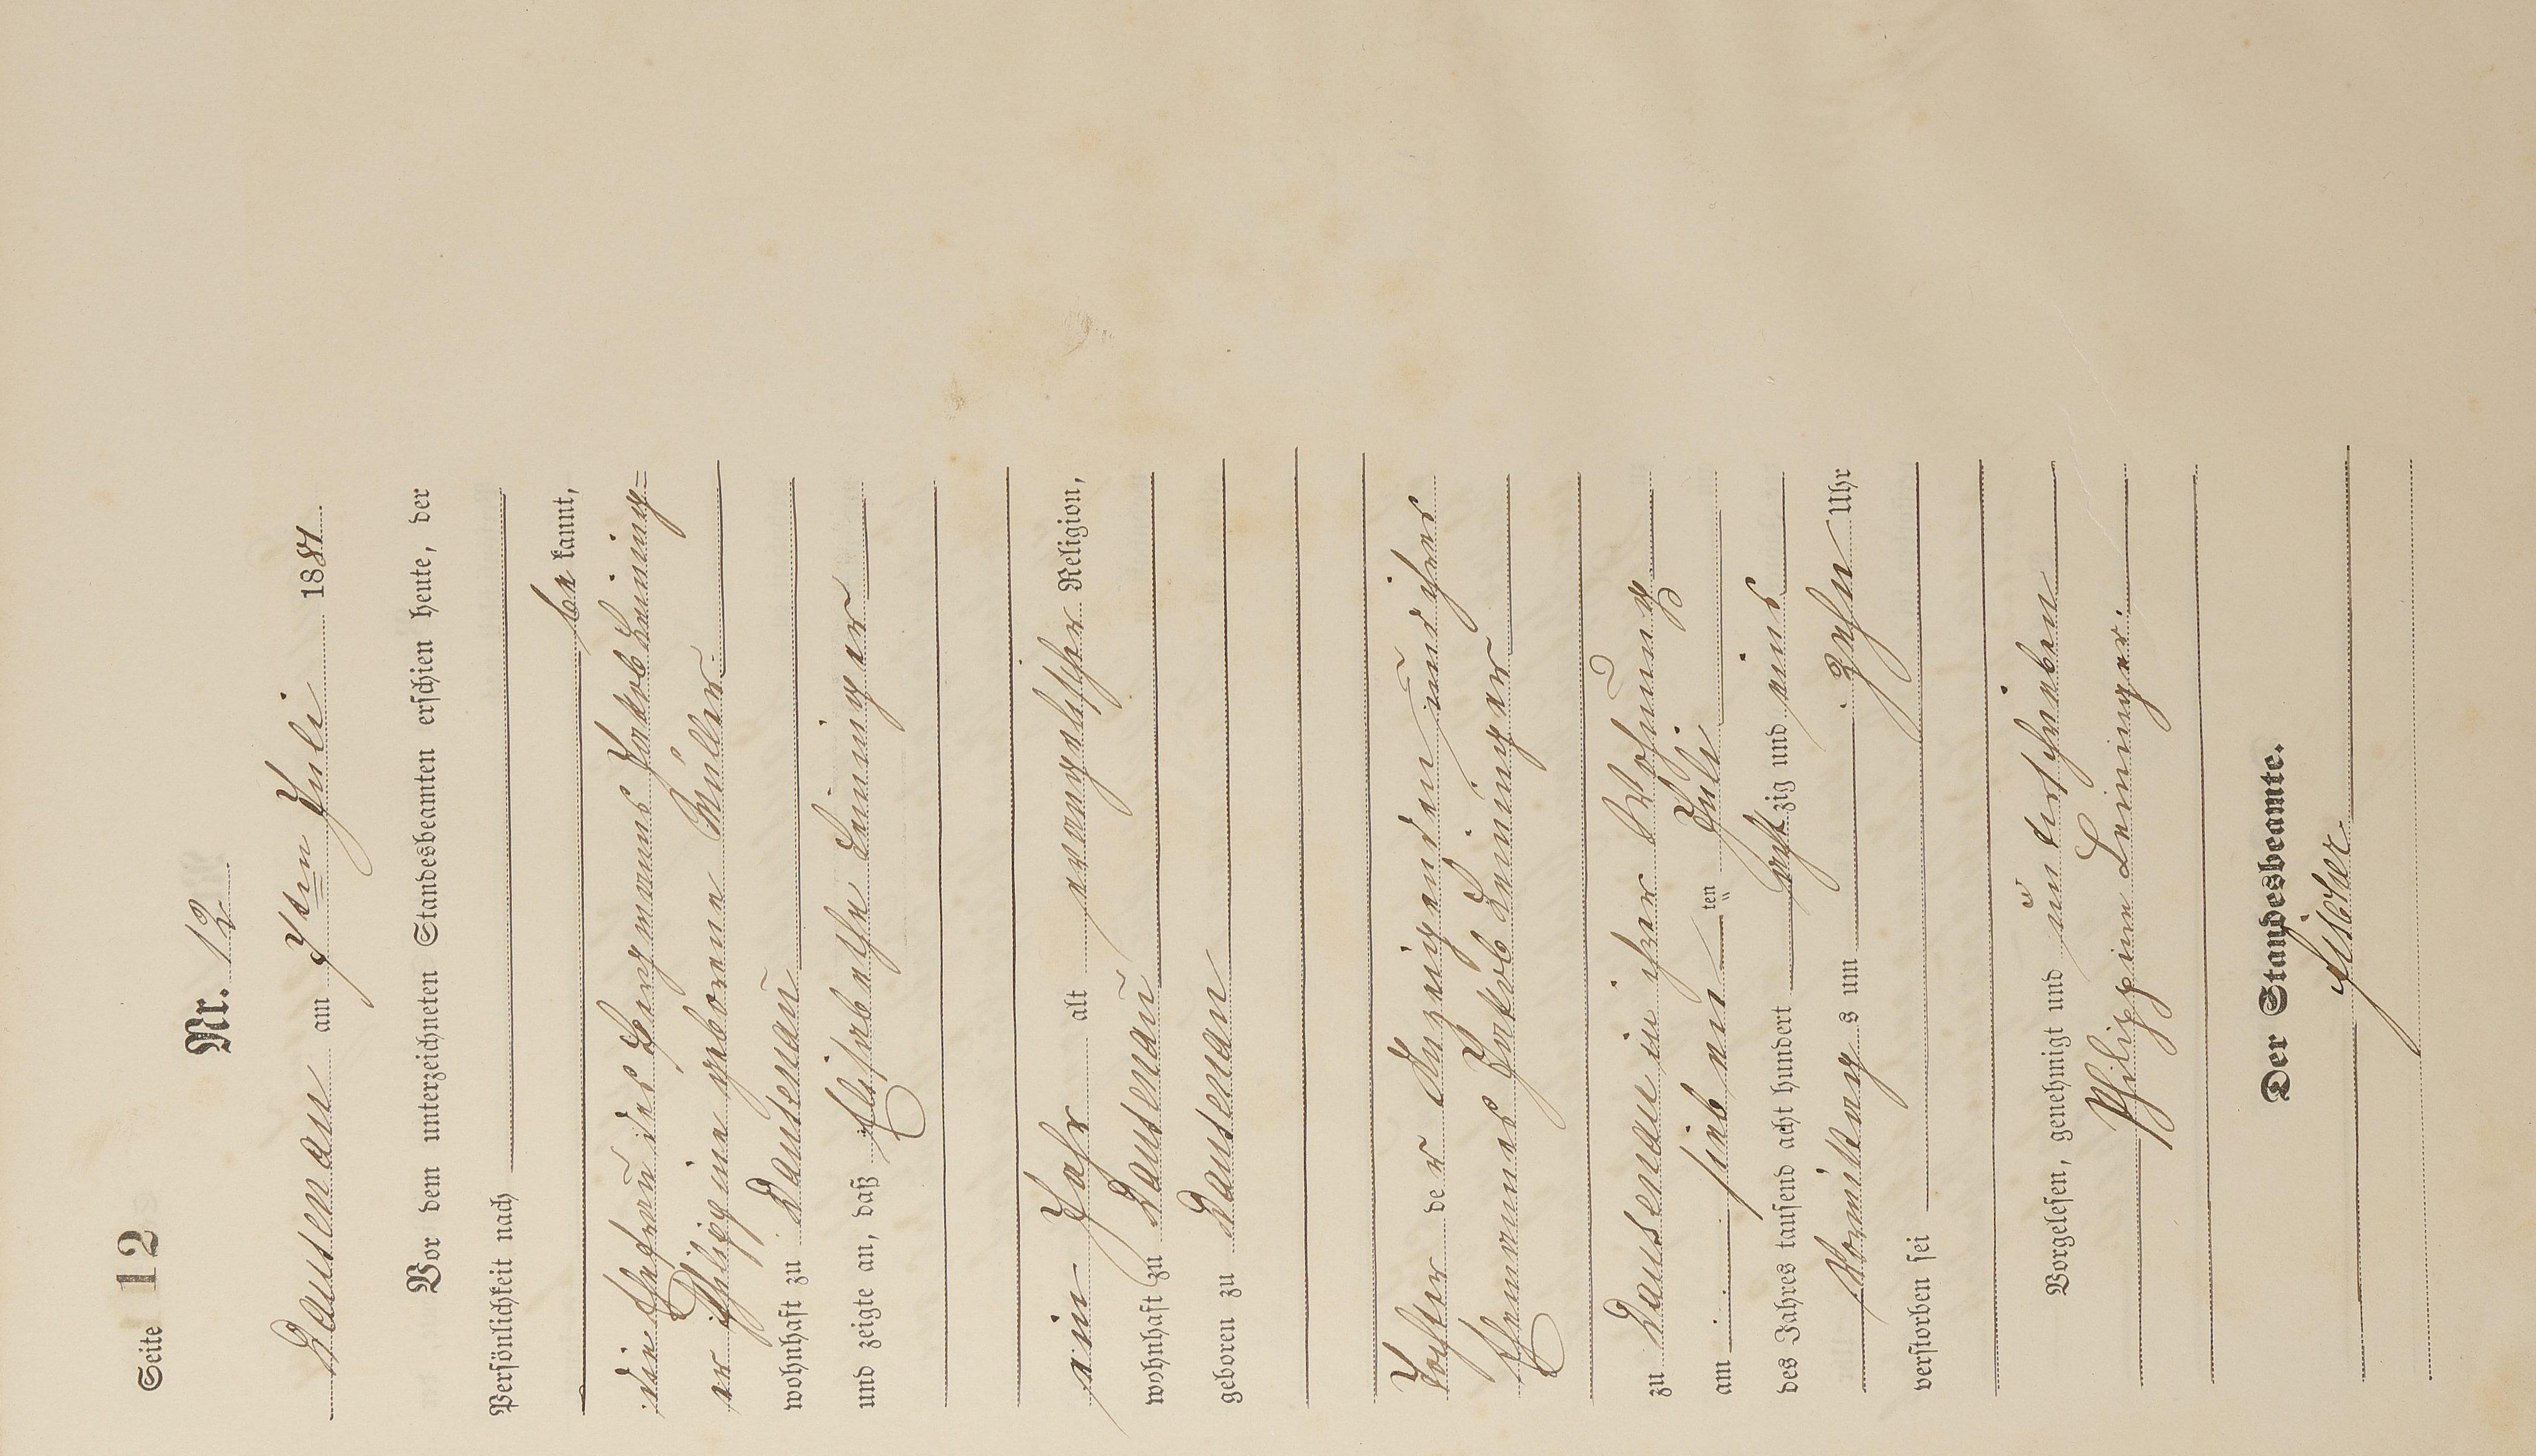 Seite 12
Nr. 12
Dausenau am 7ten Juli 1881.
Vor dem unterzeichneten Standesbeamten erschien heute, der
Persönlichkeit nach
be kannt,
die Ehefrau des Bergmanns Jakob Leining=
er Philippine geborene Müller
wohnhaft zu Dausenau
und zeigte an, daß Elisabethe Leininger
ein Jahr alt evangelischer Religion,
wohnhaft zu Dausenau
geboren zu Dausenau
Tochter der Anzeigenden und ihres
Ehemannes Jakob Leininger
zu Dausenau in ihrer Wohnung
am sieben ten Juli
des Jahres tausend acht hundert acht zig und eins
Vormittag s um zehn Uhr
verstorben sei
Vorgelesen, genehmigt und unterschrieben
Philippine Leininger.
Der Standesbeamte.